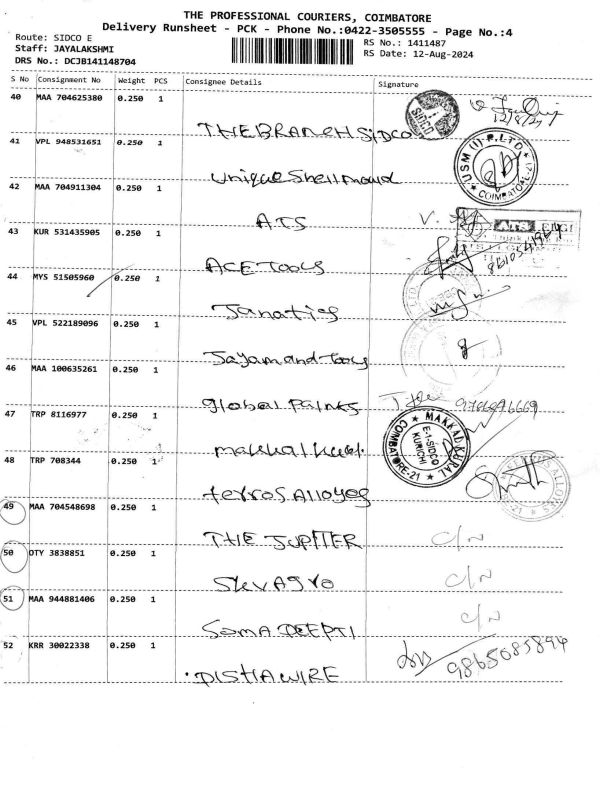 THE PROFESSIONAL COURIERS, COIMBATORE
Delivery Runsheet - PCK - Phone No.:0422-3505555 - Page No.:4
Route: SIDCO E
Staff: JAYALAKSHMI
DRS No.: DCJB141148704
RS No.: 1411487
RS Date: 12-Aug-2024
S No Consignment No Weight PCS Consignee Details Signature
40 MAA 704625380 0.250 1
THE BRANCH SIDCO
SIDCO
12/8/24
41 VPL 948531651 0.250 1
Unique Shell mould
USM (I) P. LTD
COIMBATORE-21
42 MAA 704911304 0.250 1
ATS
43 KUR 531435905 0.250 1
ACE Tools
44 MYS 51505960 0.250 1
Janatics
45 VPL 522189096 0.250 1
Jayam and Tools
46 MAA 100635261 0.250 1
global Paints
47 TRP 8116977 0.250 1
makkal kural
MAKKAL KURAL
E-1-SIDCO
KURICHI
COIMBATORE-21
48 TRP 708344 0.250 1
ferros Alloyes
49 MAA 704548698 0.250 1
THE JUPITER
C/N
50 OTY 3838851 0.250 1
C/N
51 MAA 944881406 0.250 1
Soma DEEPTI
C/N
52 KRR 30022338 0.250 1
DISHA WIRE
9865085894